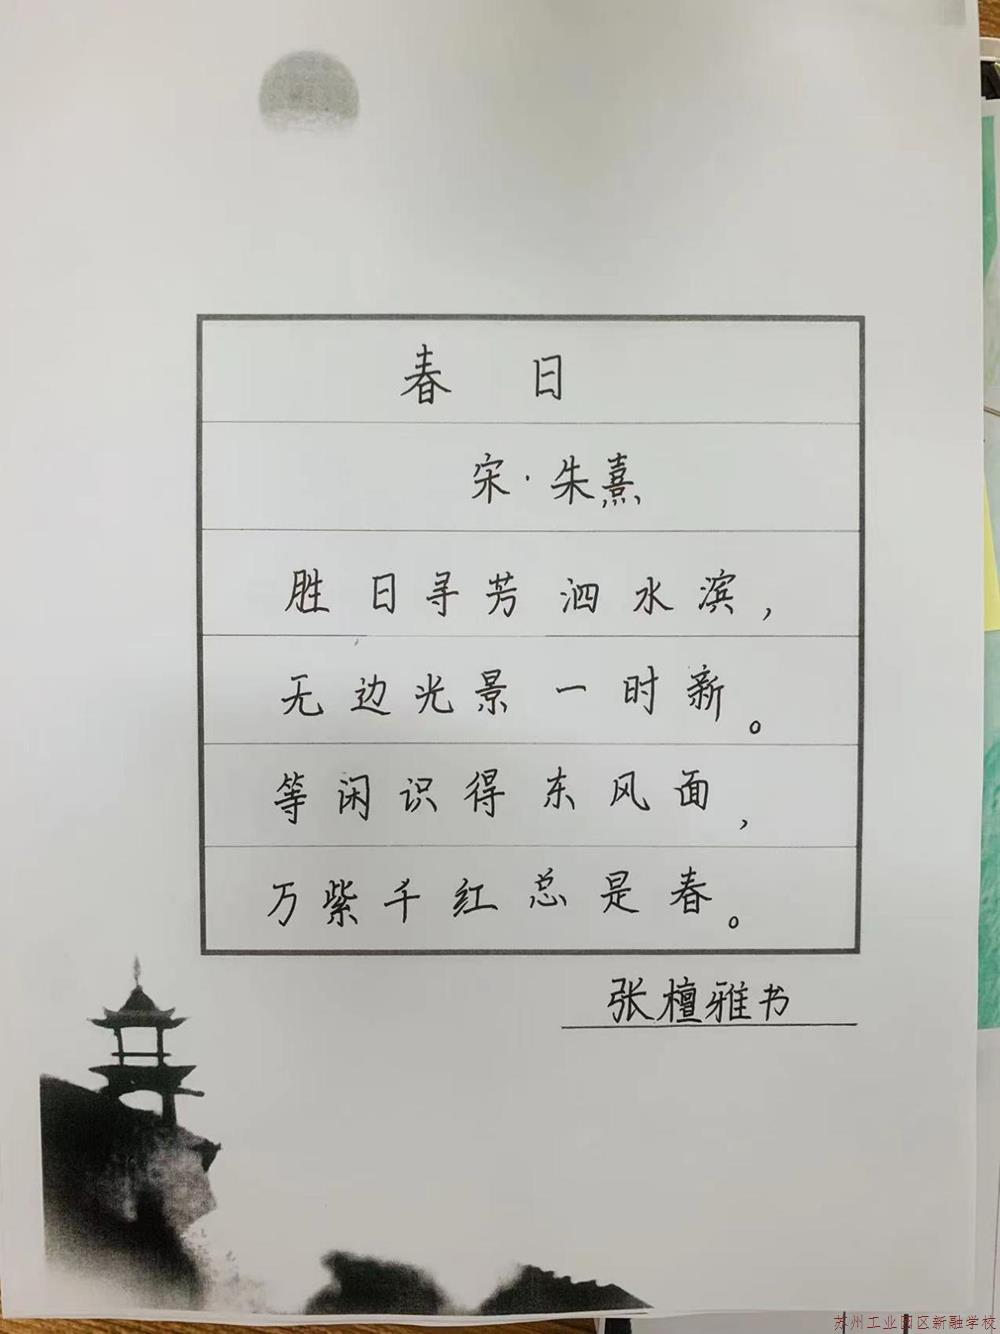 春日
宋·朱熹
胜日寻芳泗水滨，
无边光景一时新。
等闲识得东风面，
万紫千红总是春。
张檀雅书
苏州工业园区新融学校